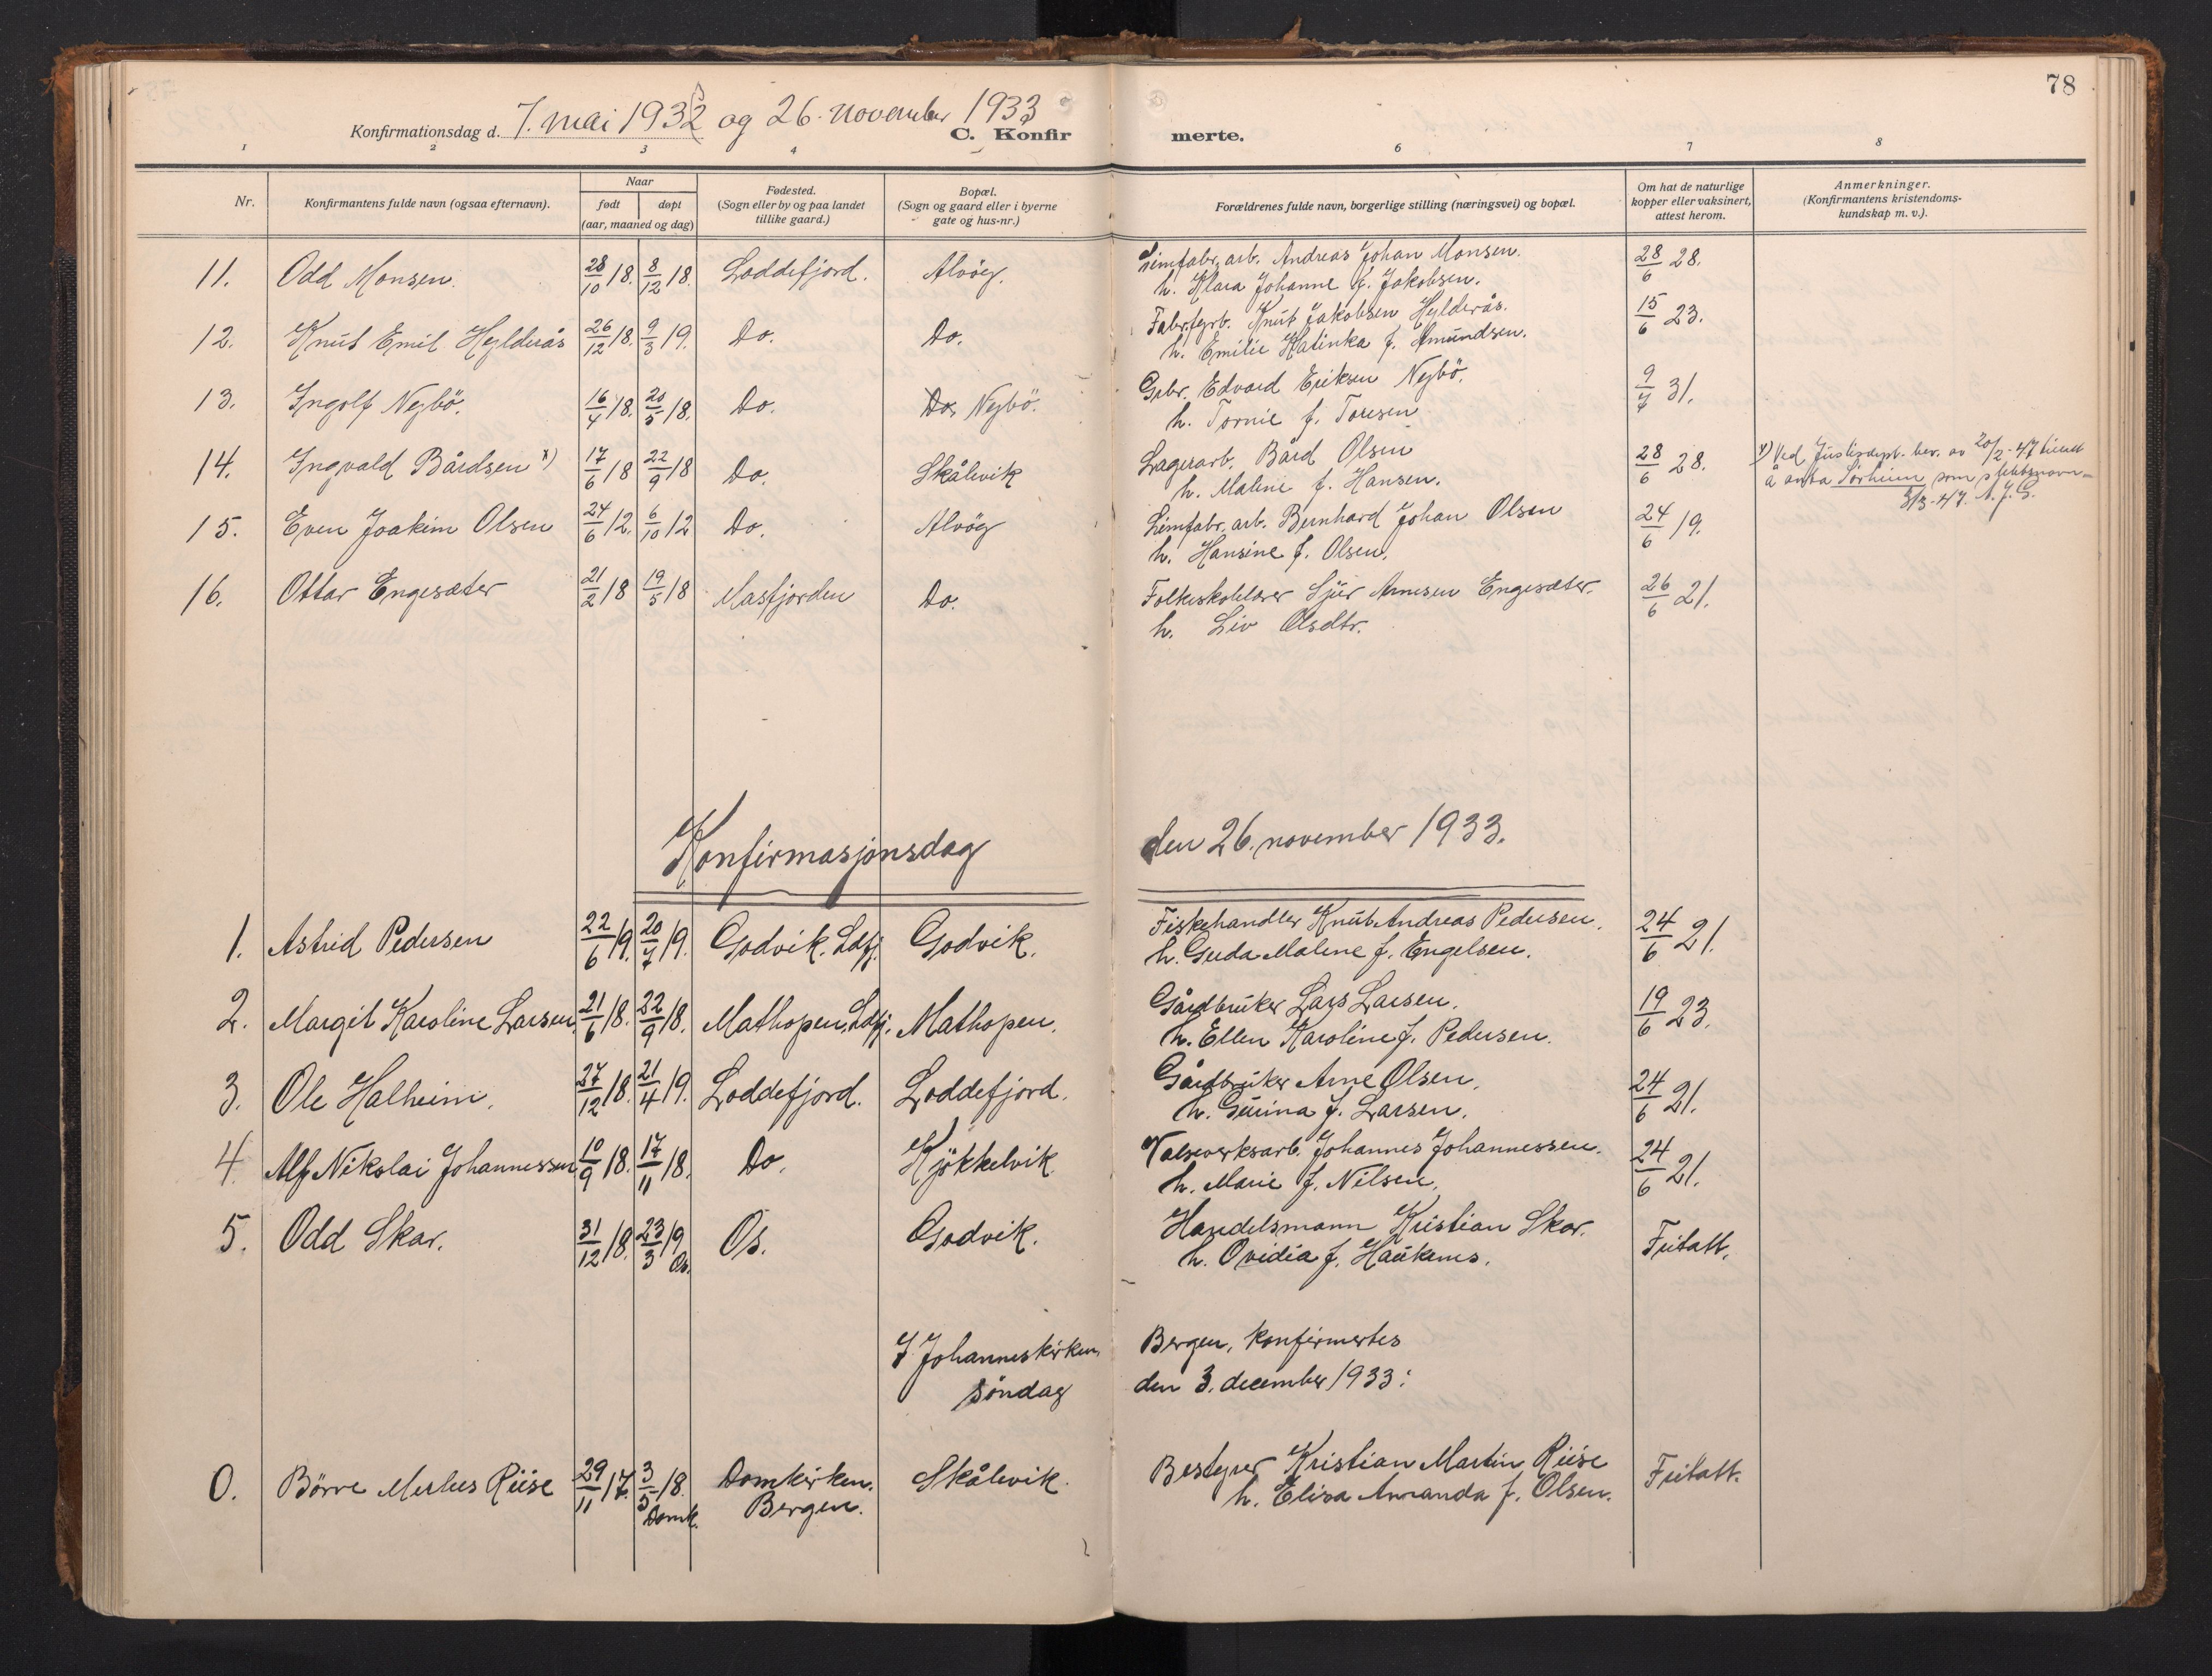 78
Konfirmationsdag d. 7. mai 1933 og 26. november 1933
C. Konfir merte.
1 2 3 4 6 7 8
Nr. Konfirmantens fulde navn (ogsaa efternavn). Naar født døpt (aar, maaned og dag) Fødested. (Sogn eller by og paa landet tillike gaard.) Bopæl. (Sogn og gaard eller i byerne gate og hus-nr.) Forældrenes fulde navn, borgerlige stilling (næringsvei) og bopæl. Om hat de naturlige kopper eller vaksinert, attest herom. Anmerkninger. (Konfirmantens kristendoms-kundskap m. v.).
11. Odd Monsen. 28/10 18. 8/12 18. Loddefjord. Alvöy. Limfabr. arb. Andreas Johan Monsen. 28/6 28.
h. Klara Johanne f. Jakobsen.
12. Knut Emil Hylderås 26/12 18. 9/3 19. Do. Do. Fabr. Knut Jakobsen Hylderås. 15/6 23.
h. Emilie Katinka f. Amundsen.
13. Ingolf Nejbö. 16/4 18. 20/5 18. Do. Do. Nejbö. Gbr. Edvard Eriksen Nejbö. 9/7 31.
h. Tornie f. Toresen
14. Ingvald Bårdsen x) 17/6 18 22/9 18 Do. Skålevik Lagerarb. Bård Olsen 28/6 28. x) Ved Justisdept. bev. av 20/2-47 tillatt
h. Maline f. Hansen. å anta Sörheim som slektsnavn
3/3-47. A.J.G.
15. Even Joakim Olsen 24/6 12. 6/10 12 Do. Alvöy Limfabr. arb. Bernhard Johan Olsen 24/6 19.
h. Hansine f. Olsen.
16. Ottar Engesæter 21/2 18 19/5 18 Masfjorden Do. Folkeskolelærer Sjur Arnesen Engesæter. 26/6 21.
h. Liv Olsdtr.
Konfirmasjonsdag den 26. november 1933.
1. Astrid Pedersen 22/6 19. 20/7 19. Godvik. Ldfj. Godvik. Fiskehandler Knut Andreas Pedersen. 24/6 21.
h. Guda Maline f. Engelsen.
2. Margit Karoline Larsen 21/6 18. 22/9 18. Mathopen, Ldfj. Mathopen. Gårdbruker Lars Larsen. 19/6 23.
h. Ellen Karoline f. Pedersen.
3. Ole Halheim. 27/12 18. 21/4 19. Loddefjord. Loddefjord. Gårdbruker Arne Olsen. 24/6 21.
h. Gurina f. Larsen.
4. Alf Nikolai Johannessen 10/9 18. 17/11 18. Do. Kjökkelvik. Valseverksarb. Johannes Johannessen. 24/6 21.
h. Marie f. Nilsen.
5. Odd Skar. 31/12 18. 23/3 19 Os. Os. Godvik. Handelsmann Kristian Skar. Fritatt.
h. Ovidia f. Haukenes.
I Johanneskirken, Bergen, konfirmertes
söndag den 3. december 1933:
0. Börre Merlees Riise 29/11 17. 3/5 18. Domk. Domkirken. Bergen. Skålevik. Bestyrer Kristian Martin Riise Fritatt.
h. Elisa Amanda f. Olsen.